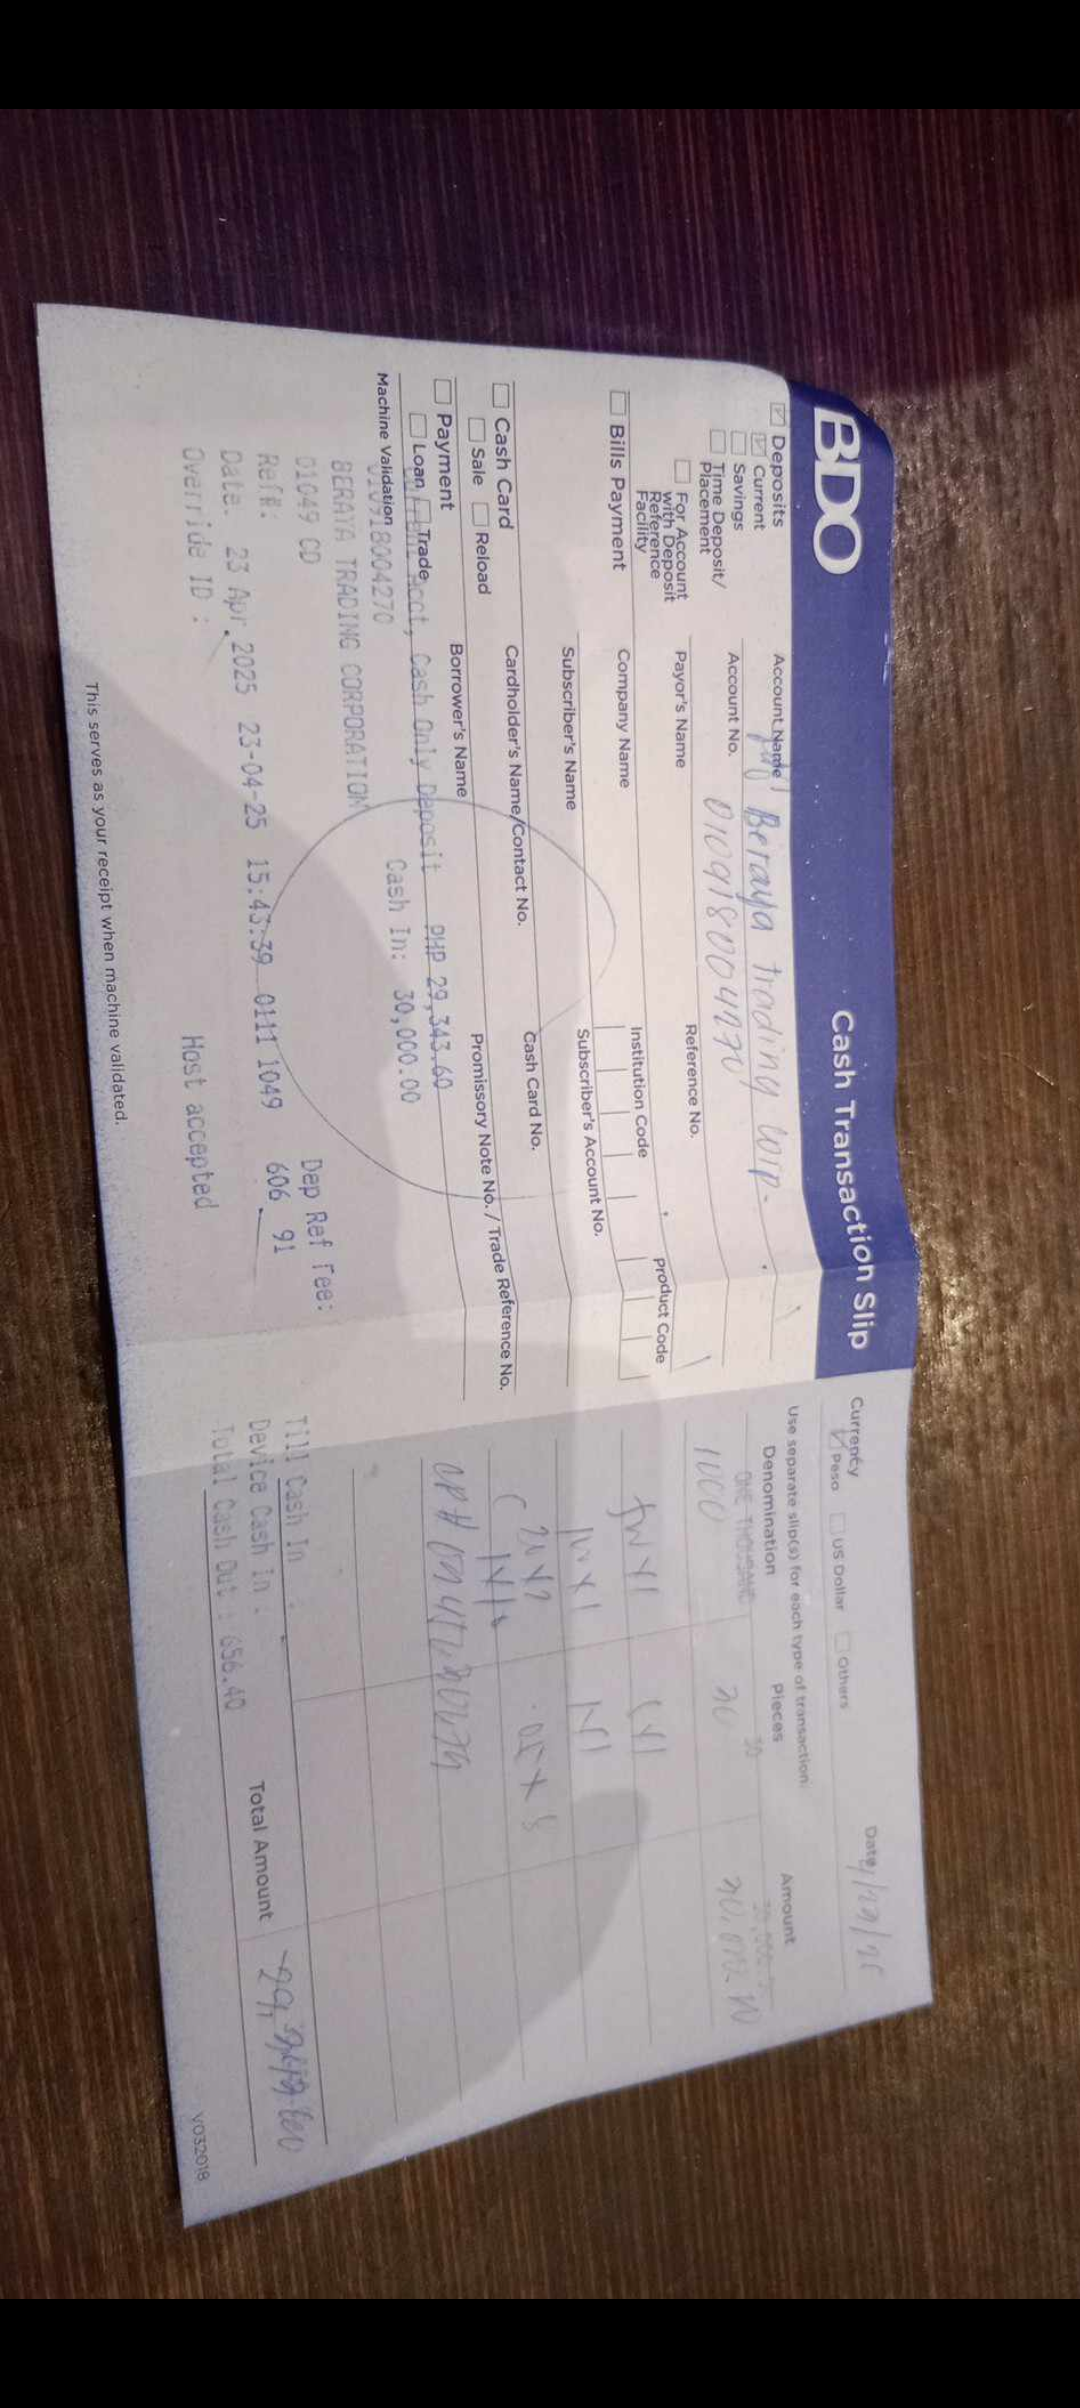 BDO
Cash Transaction Slip
Deposits
Current
Savings
Time Deposit/
Placement
For Account
with Deposit
Reference
Facility
Account Name
Beraya trading corp.
Account No.
010918004270
Payor's Name
Reference No.
Bills Payment
Company Name
Institution Code
Product Code
Subscriber's Name
Subscriber's Account No.
Cash Card
Sale
Reload
Cardholder's Name/Contact No.
Cash Card No.
Payment
Loan
Trade
Borrower's Name
Promissory Note No. / Trade Reference No.
Machine Validation
Acct, Cash Only Deposit PHP 29,343.60
010918004270 Cash In: 30,000.00
BERAYA TRADING CORPORATION
01049 CD Dep Ref Fee:
Ref#: 606 91
Date. 23 Apr 2025 23-04-25 15:43:39 0111 1049
Override ID : Host accepted
This serves as your receipt when machine validated.
Currency
Peso
US Dollar
Others
Date
Use separate slip(s) for each type of transaction.
Denomination
Pieces
Amount
ONE THOUSAND 30
1000
Till Cash In :
Device Cash In :
Total Cash Out : 656.40
Total Amount
V032018